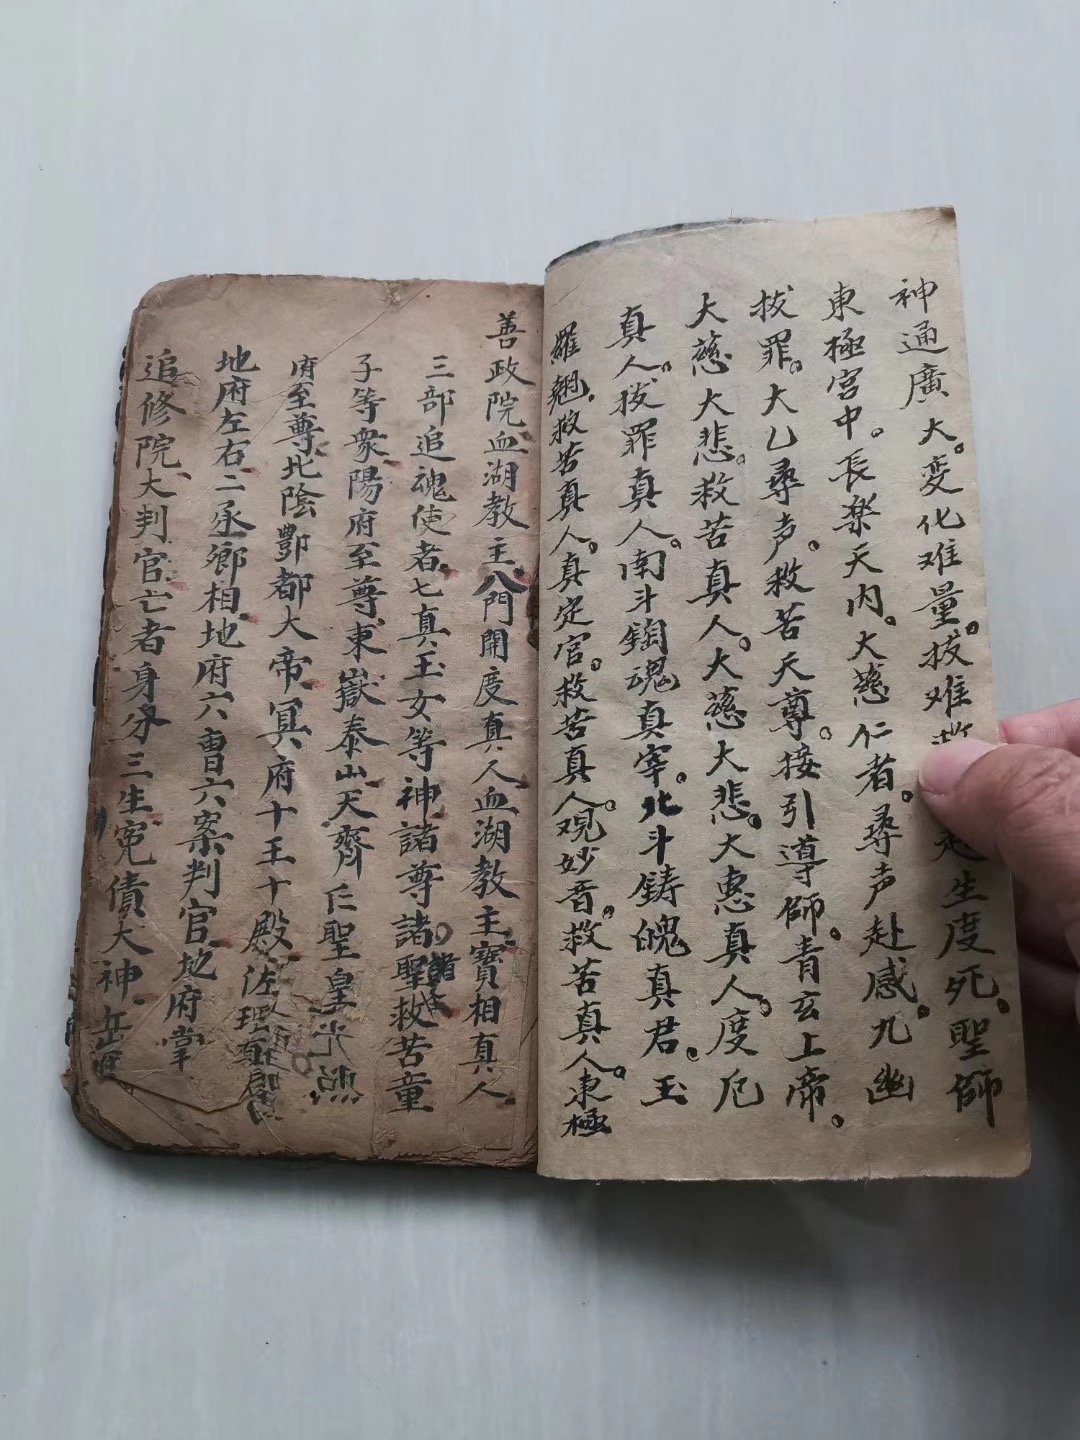 神通廣大。变化难量。拔难救
生度死。聖師
東極宮中。長楽天内。大慈仁者。尋声赴感。九幽
拔罪。大乙尋声。救苦天尊。接引導師。青玄上帝。
大慈大悲。救苦真人。大慈大悲。大惠真人。度厄
真人。拔罪真人。南斗鍧魂真宰。北斗鋳魄真君。玉
羅翘。救苦真人。真定官。救苦真人。观妙音。救苦真人。東極
善政院血湖教主八門開度真人血湖教主寶相真人
三部追魂使者七真玉女等神諸尊諸聖救苦童
子等衆陽府至尊東嶽泰山天齊仁聖皇
府至尊北陰酆都大帝冥府十王十殿
地府左右二丞卿相地府六曹六案判官地府掌
追修院大判官亡者身分三生冤債大神岳